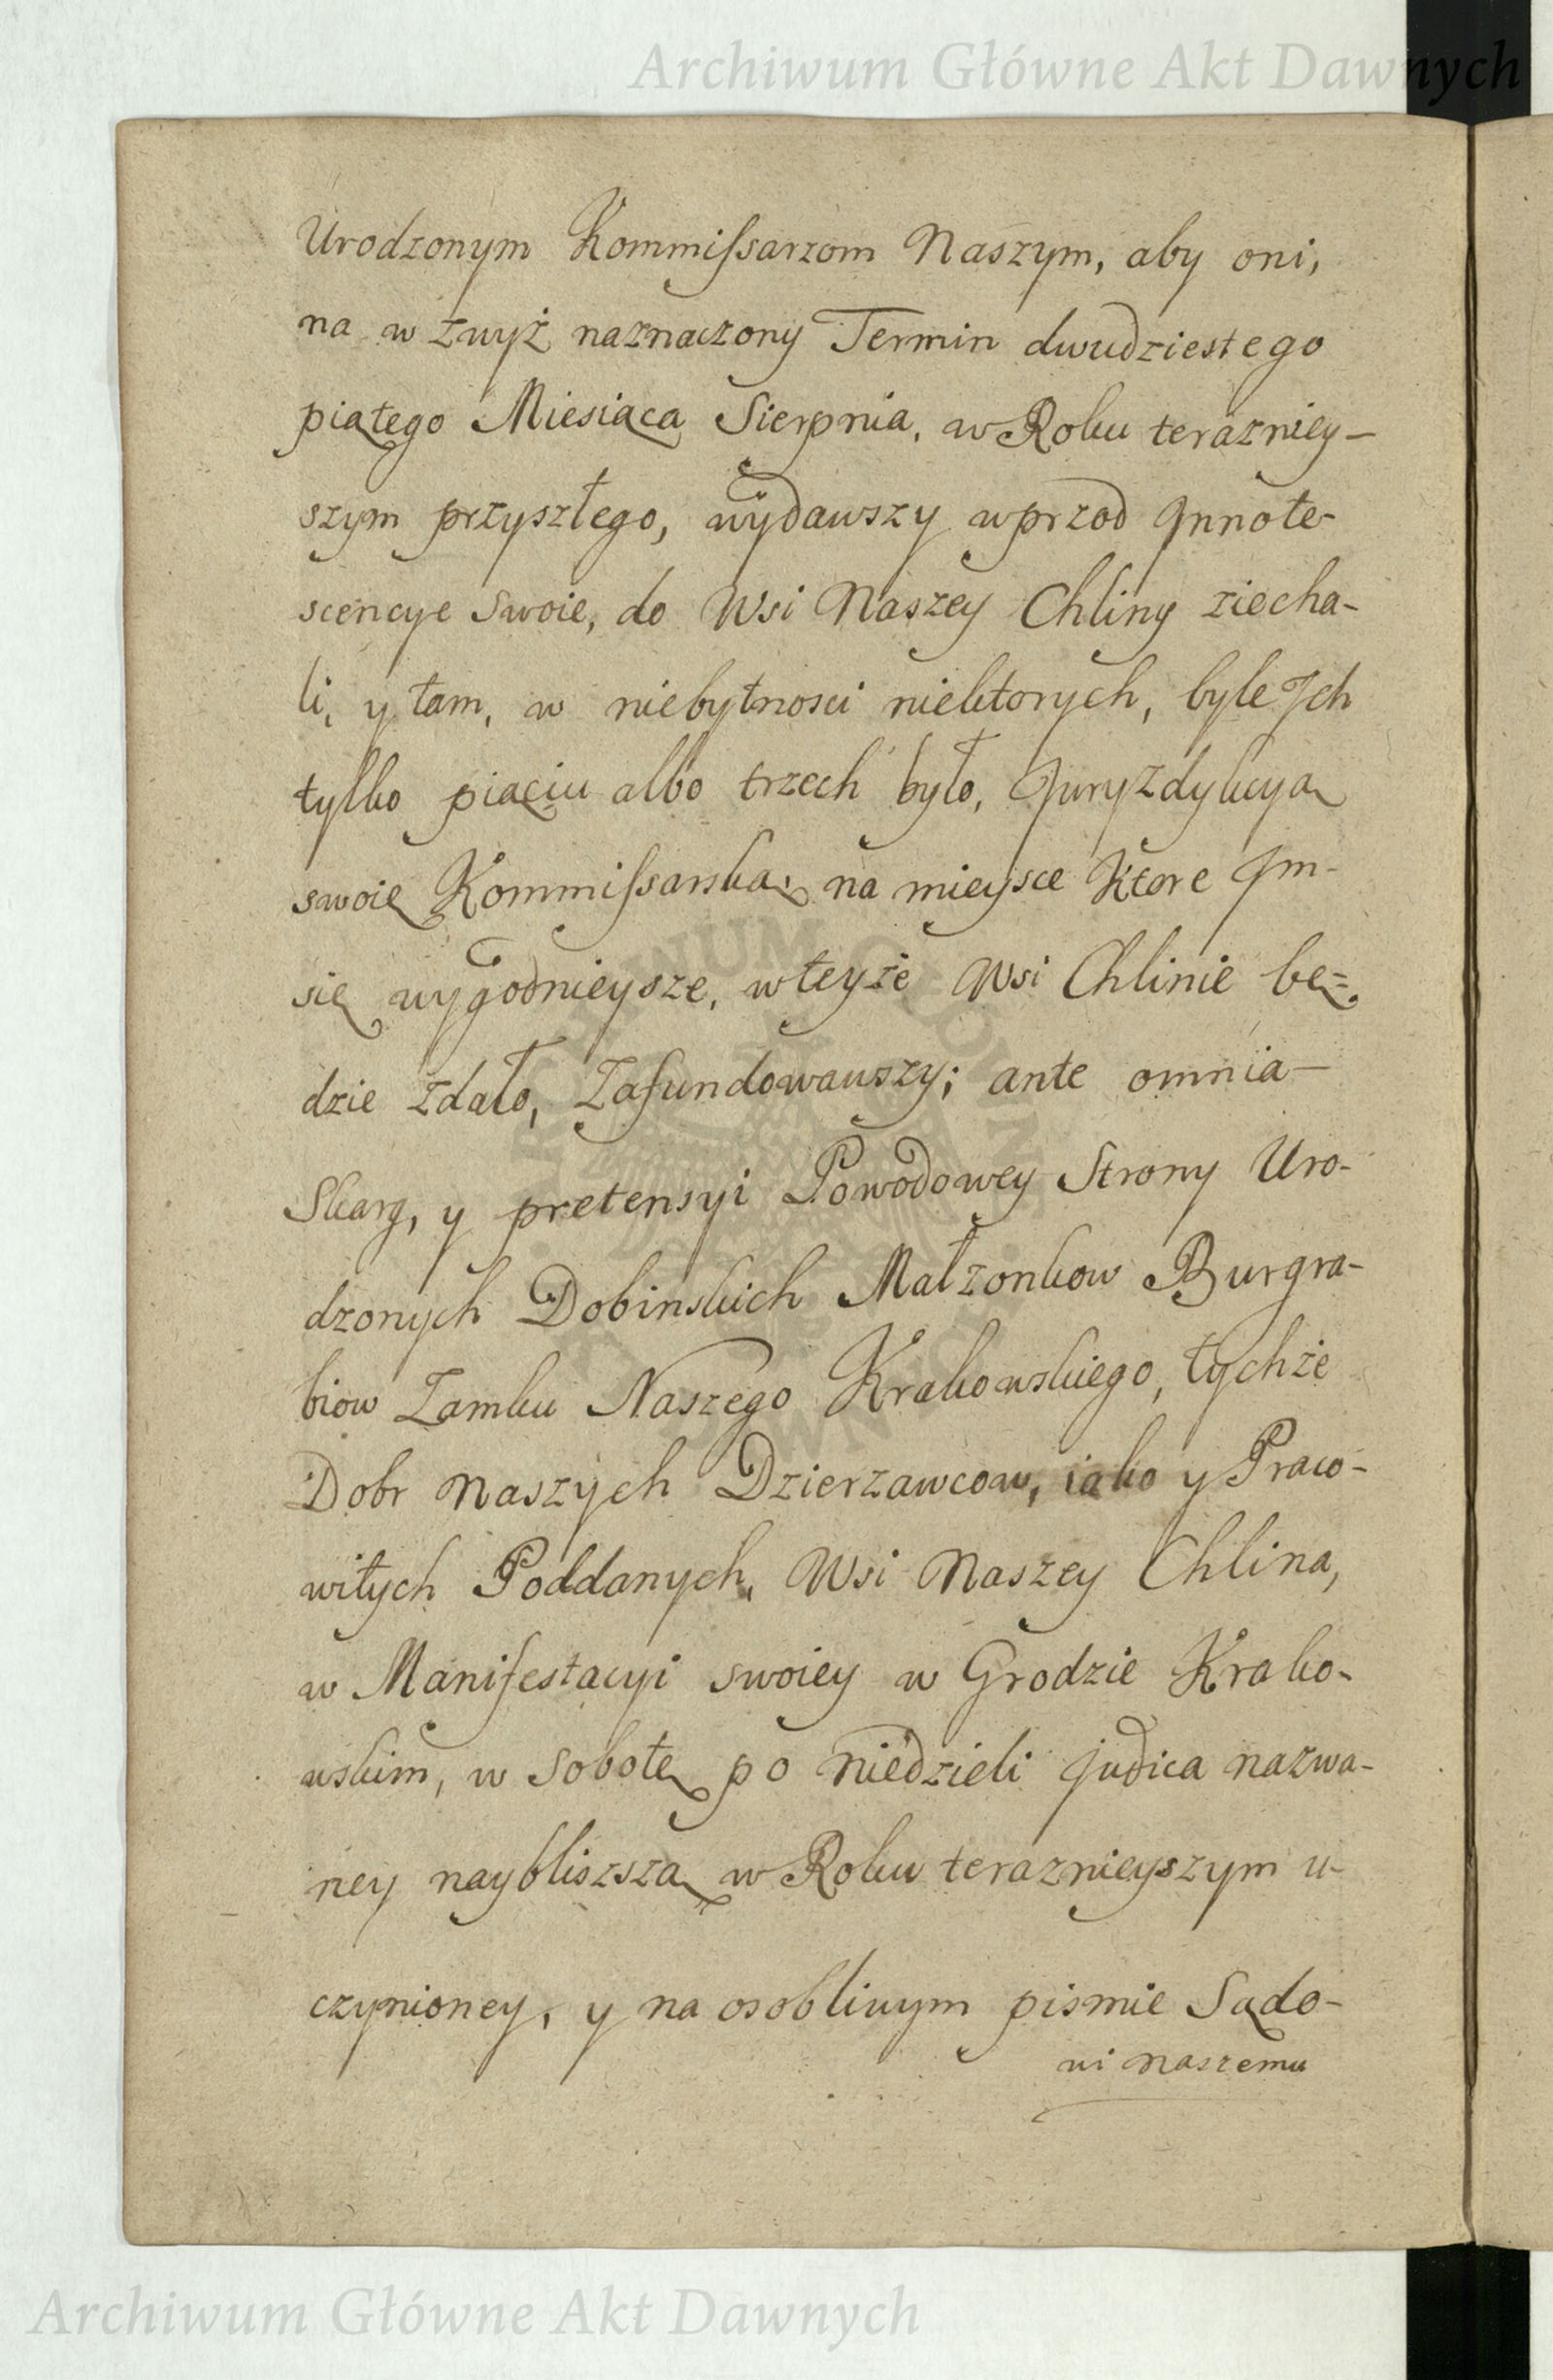 Archiwum Główne Akt Dawnych
Urodzonym Kommiſsarzom Naszym, aby oni,
na w zwyż naznaczony Termin dwudziestego
piątego Miesiąca Sierpnia, w Roku terazniey-
szym przyszłego, wydawszy wprzod Jnnote-
scencye swoie, do Wsi Naszey Chliny ziecha-
li, y tam, w niebytnosci niektorych, byle Jch
tylko piąciu albo trzech było, Juryzdykcyą
swoię Kommiſsarską, na mieysce ktore Jm-
się wygodnieysze, w teyże Wsi Chlinie bę=
dzie zdało, zafundowawszy; ante omnia-
Skarg, y pretensyi Powodowey Strony Uro-
dzonych Dobinskich Małzonkow Burgra-
biow Zamku Naszego Krakowskiego, tychże
Dobr Naszych Dzierzawcow, iako y Praco-
witych Poddanych, Wsi Naszey Chlina,
w Manifestacyi swoiey w Grodzie Krako-
wskim, w Sobotę po Niedzieli Judica nazwa-
ney naybliszszą w Roku teraznieyszym u-
czynioney, y na osobliwym pismie Sądo-
wi Naszemu
Archiwum Główne Akt Dawnych